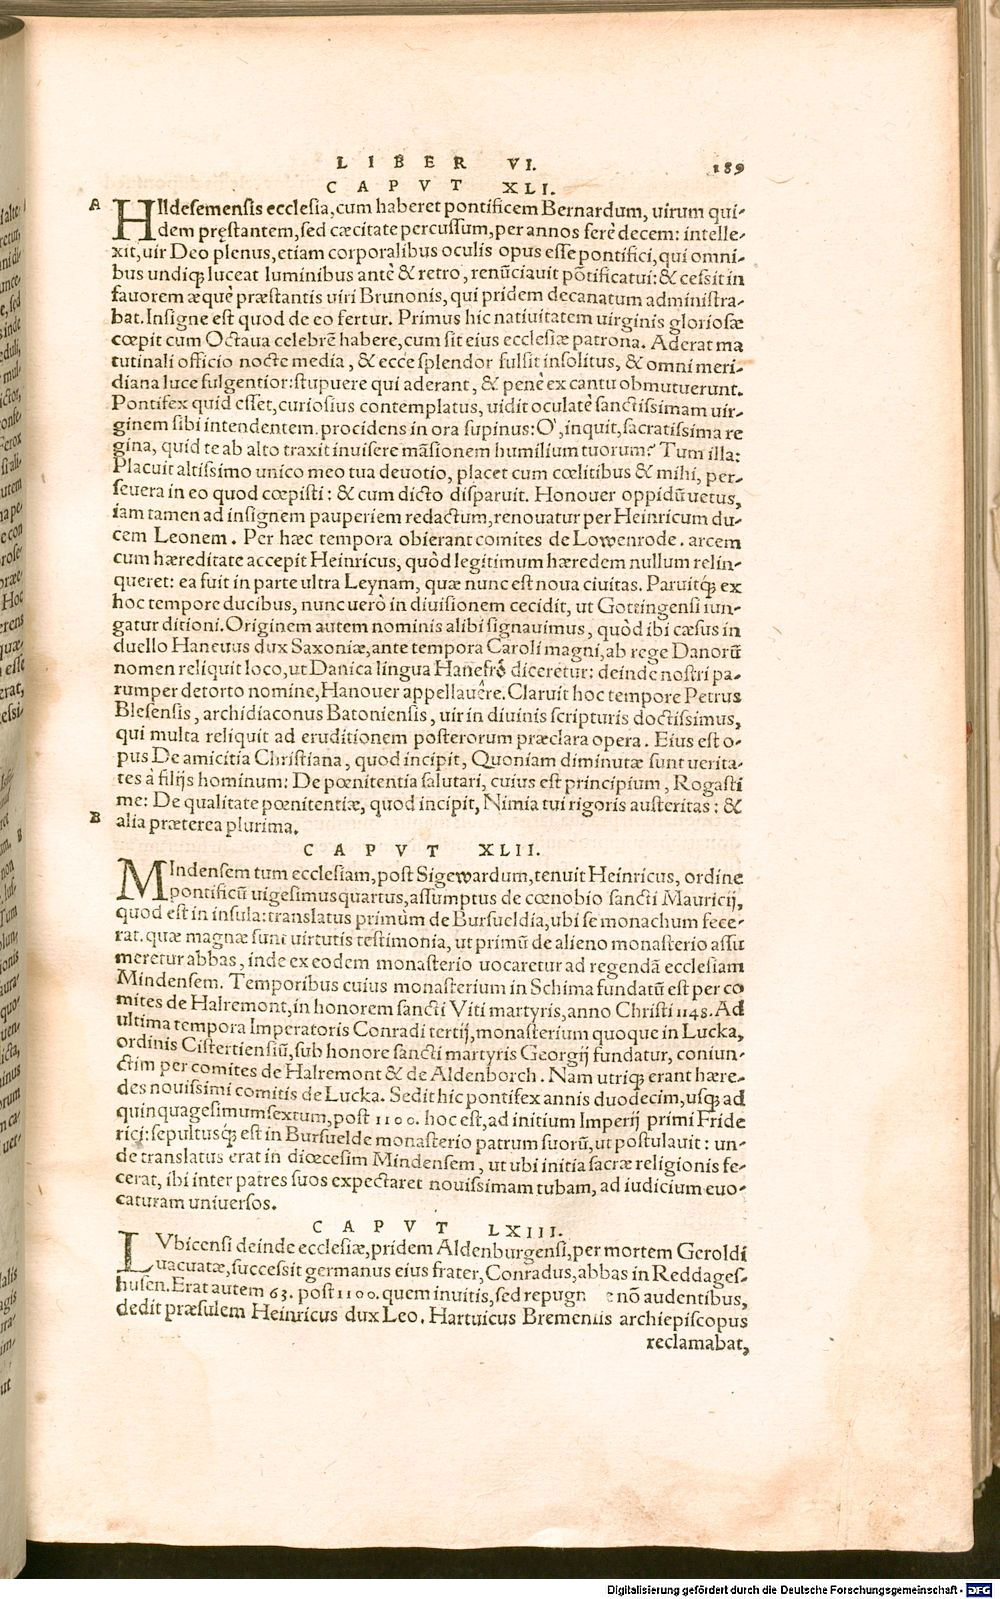 LIBER VI. 189
CAPVT XLI.
A HIldesemensis ecclesia, cum haberet pontificem Bernardum, uirum qui-
dem pręstantem, sed cæcitate percussum, per annos ferè decem: intelle-
xit, uir Deo plenus, etiam corporalibus oculis opus esse pontifici, qui omni-
bus undiq; luceat luminibus antè & retro, renūciauit pōtificatui: & cessit in
fauorem æquè præstantis uiri Brunonis, qui pridem decanatum administra-
bat. Insigne est quod de eo fertur. Primus hic natiuitatem uirginis gloriosæ
cœpit cum Octaua celebrē habere, cum sit eius ecclesiæ patrona. Aderat ma
tutinali officio nocte media, & ecce splendor fulsit insolitus, & omni meri-
diana luce fulgentior: stupuere qui aderant, & penè ex cantu obmutuerunt.
Pontifex quid esset, curiosius contemplatus, uidit oculatè sanctissimam uir-
ginem sibi intendentem. procidens in ora supinus: O', inquit, sacratissima re
gina, quid te ab alto traxit inuisere māsionem humilium tuorum? Tum illa:
Placuit altissimo unico meo tua deuotio, placet cum cœlitibus & mihi, per-
seuera in eo quod cœpisti: & cum dicto disparuit. Honouer oppidū uetus,
iam tamen ad insignem pauperiem redactum, renouatur per Heinricum du-
cem Leonem. Per hæc tempora obierant comites de Lowenrode. arcem
cum hæreditate accepit Heinricus, quòd legitimum hæredem nullum relin-
queret: ea fuit in parte ultra Leynam, quæ nunc est noua ciuitas. Paruitq; ex
hoc tempore ducibus, nunc uerò in diuisionem cecidit, ut Gottingensi iun-
gatur ditioni. Originem autem nominis alibi signauimus, quòd ibi cæsus in
duello Haneuus dux Saxoniæ, ante tempora Caroli magni, ab rege Danorū
nomen reliquit loco, ut Danica lingua Hanefrō diceretur: deinde nostri pa-
rumper detorto nomine, Hanouer appellauêre. Claruit hoc tempore Petrus
Blesensis, archidiaconus Batoniensis, uir in diuinis scripturis doctissimus,
qui multa reliquit ad eruditionem posterorum præclara opera. Eius est o-
pus De amicitia Christiana, quod incipit, Quoniam diminutæ sunt uerita-
tes à filijs hominum: De pœnitentia salutari, cuius est principium, Rogasti
me: De qualitate pœnitentiæ, quod incipit, Nimia tui rigoris austeritas: &
B alia præterea plurima.
CAPVT XLII.
MIndensem tum ecclesiam, post Sigewardum, tenuit Heinricus, ordine
pontificū uigesimusquartus, assumptus de cœnobio sancti Mauricij,
quod est in insula: translatus primùm de Bursueldia, ubi se monachum fece-
rat. quæ magnæ sunt uirtutis testimonia, ut primū de alieno monasterio assu
meretur abbas, inde ex eodem monasterio uocaretur ad regendā ecclesiam
Mindensem. Temporibus cuius monasterium in Schima fundatū est per co
mites de Halremont, in honorem sancti Viti martyris, anno Christi 1148. Ad
ultima tempora Imperatoris Conradi tertij, monasterium quoque in Lucka,
ordinis Cistertiensiū, sub honore sancti martyris Georgij fundatur, coniun-
ctim per comites de Halremont & de Aldenborch. Nam utriq; erant hære-
des nouissimi comitis de Lucka. Sedit hic pontifex annis duodecim, usq; ad
quinquagesimumsextum, post 1100. hoc est, ad initium Imperij primi Fride
rici: sepultusq; est in Bursuelde monasterio patrum suorū, ut postulauit: un-
de translatus erat in diœcesim Mindensem, ut ubi initia sacræ religionis fe-
cerat, ibi inter patres suos expectaret nouissimam tubam, ad iudicium euo-
caturam uniuersos.
CAPVT LXIII.
LVbicensi deinde ecclesiæ, pridem Aldenburgensi, per mortem Geroldi
uacuatæ, successit germanus eius frater, Conradus, abbas in Reddages-
husen. Erat autem 63. post 1100. quem inuitis, sed repugn e nō audentibus,
dedit præsulem Heinricus dux Leo. Hartuicus Bremensis archiepiscopus
reclamabat,
Digitalisierung gefördert durch die Deutsche Forschungsgemeinschaft - DFG